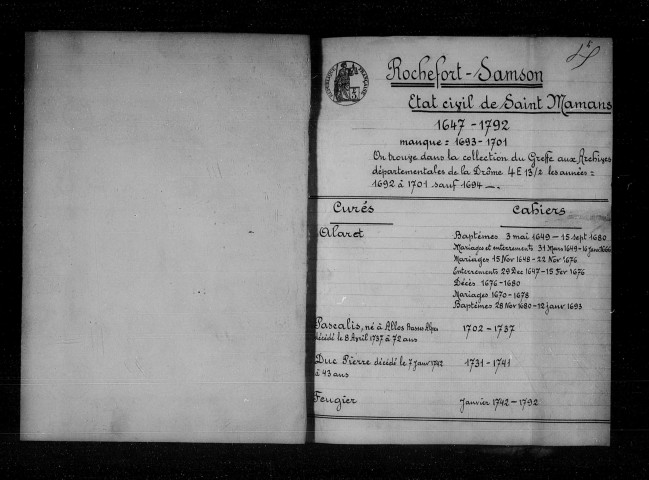 Rochefort-Samson
Etat civil de Saint Mamans
1647 - 1792
manque = 1693 - 1701
On trouve dans la collection du Greffe aux Archives
départementales de la Drôme 4 E 13/2 les années =
1692 à 1701 sauf 1694 -.
Curés
Cahiers
Alaret
Baptêmes 3 mai 1649 - 15 sept 1680
Mariages et enterrements 31 Mars 1649 - 16 Janv 1666
Mariages 15 Nov 1648 - 22 Nov 1676
Enterrements 29 Dec 1647 - 15 Fev 1676
Décès 1676 - 1680
Mariages 1670 - 1678
Baptêmes 28 Nov 1680 - 12 janv 1693
Pascalis, né à Allos Basses Alpes
décédé le 8 Avril 1737 à 72 ans
1702 - 1737
Duc Pierre décédé le 7 Janv 1742
à 43 ans
1731 - 1741
Feugier
Janvier 1742 - 1792